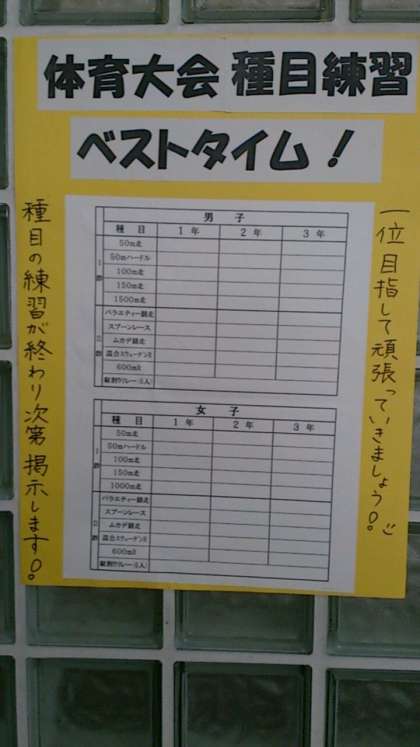 体育大会 種目練習
ベストタイム!
一位目指して頑張っていきましょう!
男子
種目 1年 2年 3年
50m走
50mハードル
100m走
150m走
1500m走
バラエティー競走
スプーンレース
ムカデ競走
混合スウェーデンR
600mR
女子
種目 1年 2年 3年
50m走
50mハードル
100m走
150m走
1000m走
バラエティー競走
スプーンレース
ムカデ競走
混合スウェーデンR
600mR
種目の練習が終わり次第掲示します!